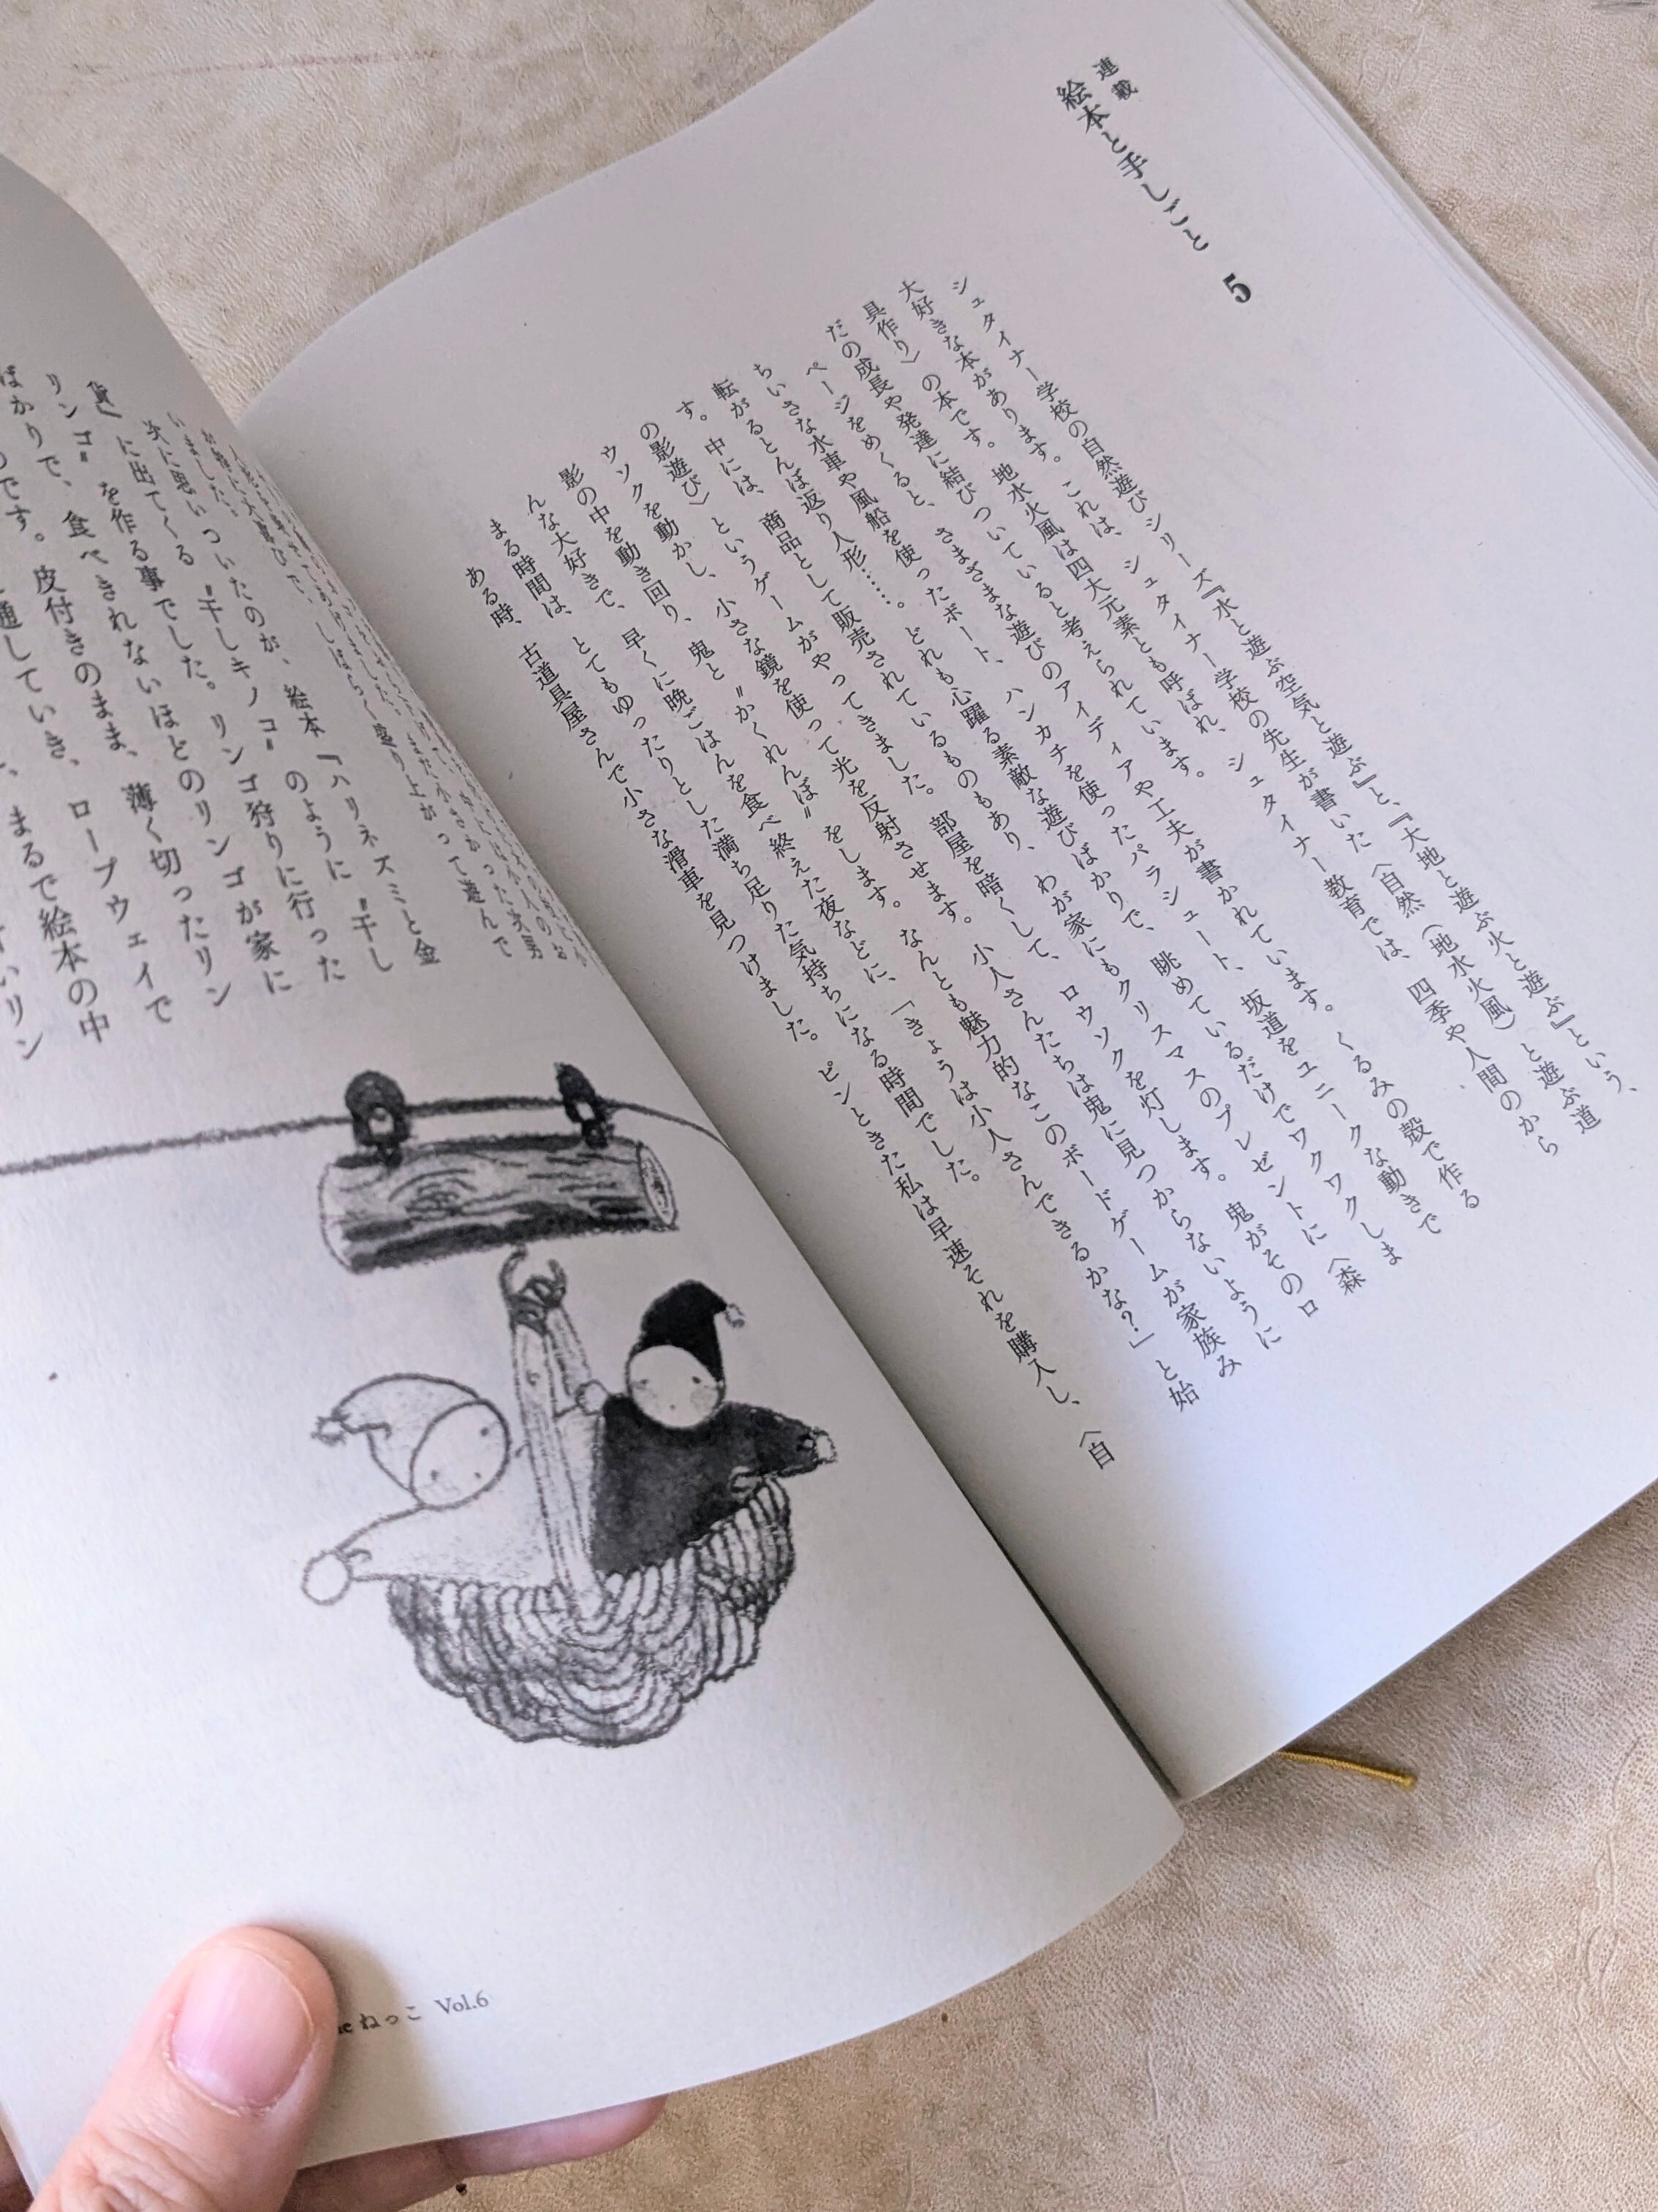 連載
絵本と手しごと 5
シュタイナー学校の自然遊びシリーズ『水と遊ぶ空気と遊ぶ』と、『大地と遊ぶ火と遊ぶ』という、
大好きな本があります。これは、シュタイナー学校の先生が書いた〈自然(地水火風)と遊ぶ道
具作り〉の本です。地水火風は四大元素とも呼ばれ、シュタイナー教育では、四季や人間のから
だの成長や発達に結びついていると考えられています。
ページをめくると、さまざまな遊びのアイディアや工夫が書かれています。くるみの殻で作る
ちいさな水車や風船を使ったボート、ハンカチを使ったパラシュート、坂道をユニークな動きで
転がるとんぼ返り人形……。どれも心躍る素敵な遊びばかりで、眺めているだけでワクワクしま
す。中には、商品として販売されているものもあり、わが家にもクリスマスのプレゼントに〈森
の影遊び〉というゲームがやってきました。部屋を暗くして、ロウソクを灯します。鬼がそのロ
ウソクを動かし、小さな鏡を使って光を反射させます。小人さんたちは鬼に見つからないように
影の中を動き回り、鬼と〝かくれんぼ〟をします。なんとも魅力的なこのボードゲームが家族み
んな大好きで、早くに晩ごはんを食べ終えた夜などに、「きょうは小人さんできるかな?」と始
まる時間は、とてもゆったりとした満ち足りた気持ちになる時間でした。
ある時、古道具屋さんで小さな滑車を見つけました。ピンときた私は早速それを購入し、〈自
盛り上がって遊んで
いました。
次に思いついたのが、絵本『ハリネズミと金
貨』に出てくる〝干しキノコ〟のように〝干し
リンゴ〟を作る事でした。リンゴ狩りに行った
ばかりで、食べきれないほどのリンゴが家に
のです。皮付きのまま、薄く切ったリン
通していき、ロープウェイで
まるで絵本の中
リン
ねっこ Vol.6